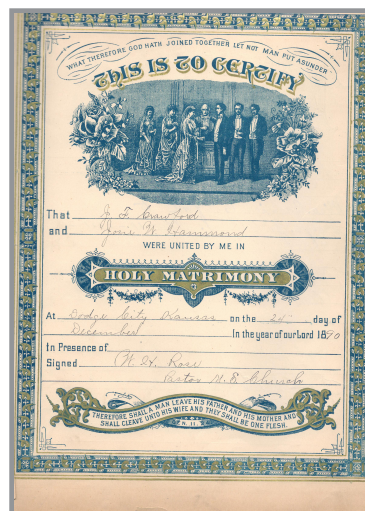 WHAT THEREFORE GOD HATH JOINED TOGETHER LET NOT MAN PUT ASUNDER
THIS IS TO CERTIFY
That J. F. Crawford
and Josie W. Hammond
WERE UNITED BY ME IN
HOLY MATRIMONY
At Dodge City Kansas on the 24 day of
December In the year of our Lord 1890
In Presence of
Signed N. H. Rose
Pastor M. E. Church
THEREFORE SHALL A MAN LEAVE HIS FATHER AND HIS MOTHER AND
SHALL CLEAVE UNTO HIS WIFE AND THEY SHALL BE ONE FLESH.